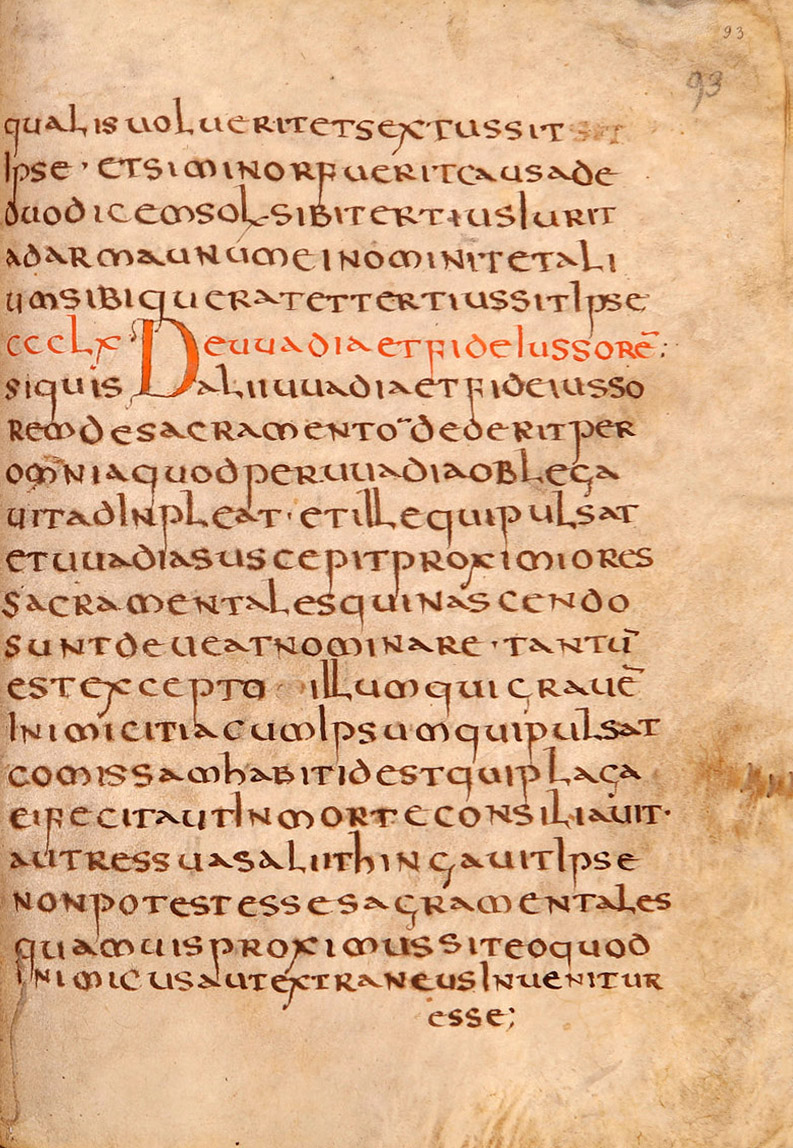 93
93
qualis uoluerit et sextus sit
ipse · et si minor fuerit causa de
duodicem sol· sibi tertius iurit
ad arma unum ei nominit et ali
um sibi querat et tertius sit ipse
ccclx De uuadia et fideiussorē;
si quis Dalii uuadia et fideiusso
rem de sacramentō dederit per
omnia quod per uuadia obliga
uit adinpleat · et ille qui pulsat
et uuadia suscepit proximiores
sacramentales qui nascendo
sunt deueat nominare · tantū
est excepto illum qui grauē
inimicitia cum ipsum qui pulsat
comissam habit id est qui plaga
ei fecit aut in morte consiliauit ·
aut res suas alii thingauit ipse
non potest esse sacramentales
quamuis proximus sit eo quod
inimicus aut extraneus inuenitur
esse;